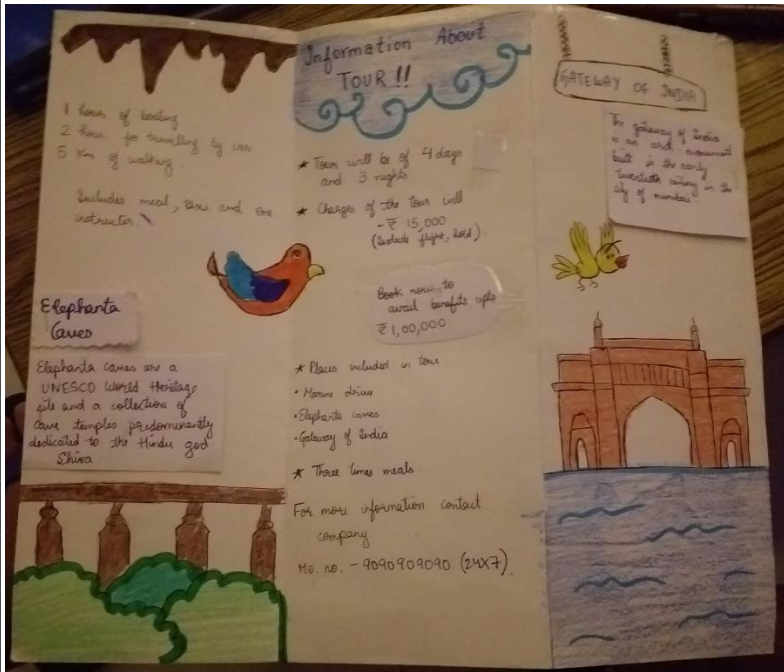 1 hour of boating
2 hour for travelling by car
5 Km of walking
Includes meal, taxi and one
instructor.
Elephanta
Caves
Elephanta caves are a
UNESCO World Heritage
site and a collections of
cave temples predominantly
dedicated to the Hindu god
Shiva
Information About
TOUR !!
★ Tour will be of 4 days
and 3 nights
★ Charges of the tour will
- ₹ 15,000
(Include flight, hotel).
Book now to
avail benefits upto
₹ 1,00,000
★ Places included in tour
• Marine drive
• Elephanta caves
• Gateway of India
★ Three times meals.
For more information contact
company
Mo. no. - 9090909090 (24X7).
GATEWAY OF INDIA
The gateway of India
is an arch monument
built in the early
twentieth century in the
city of mumbai